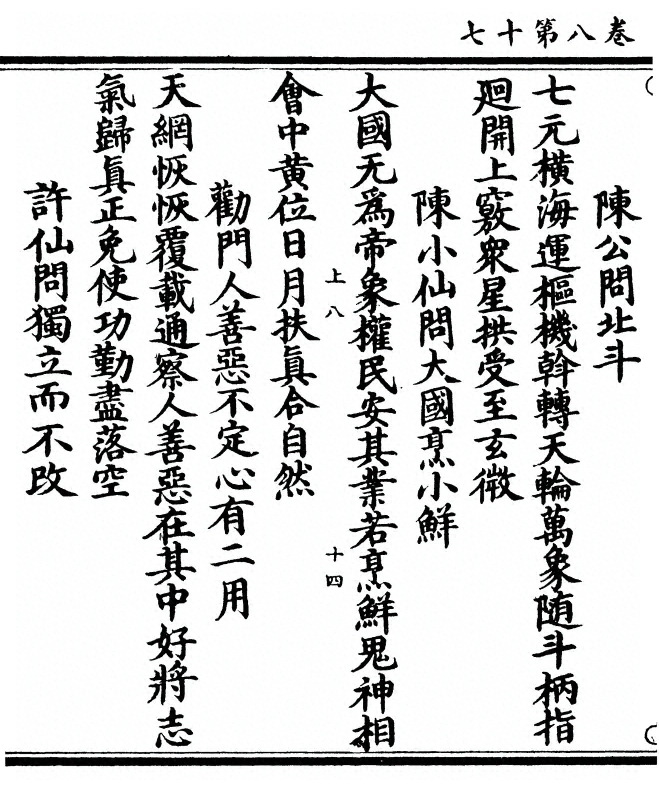 七十第八卷
陳公問北斗
七元橫海運樞機斡轉天輪萬象随斗柄指
廻開上竅衆星拱受至玄微
陳小仙問大國烹小鮮
大國无爲帝象權民安其業若烹鮮鬼神相
上八
十四
會中黄位日月扶眞合自然
勸門人善惡不定心有二用
天網恢恢覆載通察人善惡在其中好將志
氣歸眞正免使功勤盡落空
許仙問獨立而不改